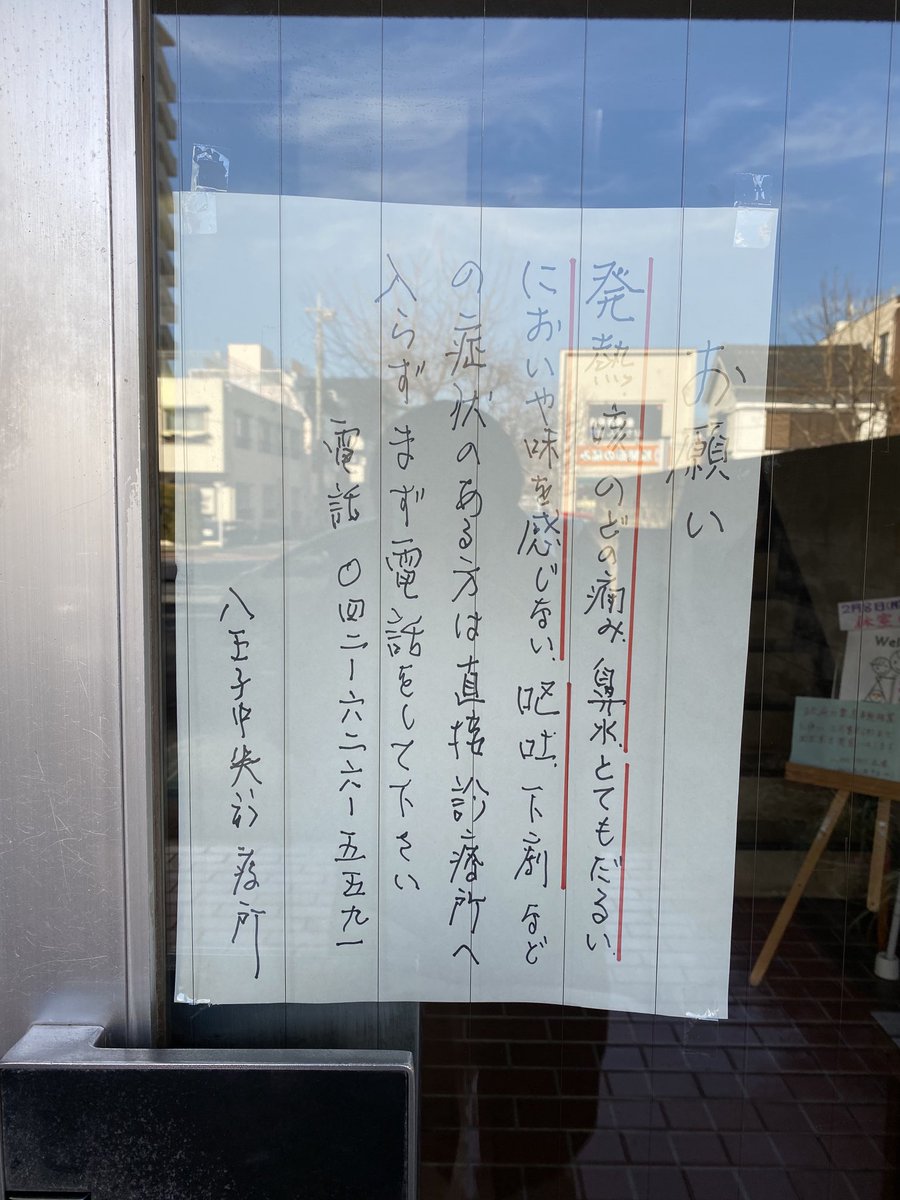 お願い
発熱、咳、のどの痛み、鼻水、とてもだるい、
においや味を感じない、呕吐、下痢 など
の症状のある方は直接診療所へ
入らずまず電話をして下さい
電話 〇四二ー六二六ー五五九一
八王子中央診療所
2月8日(月)
Wel